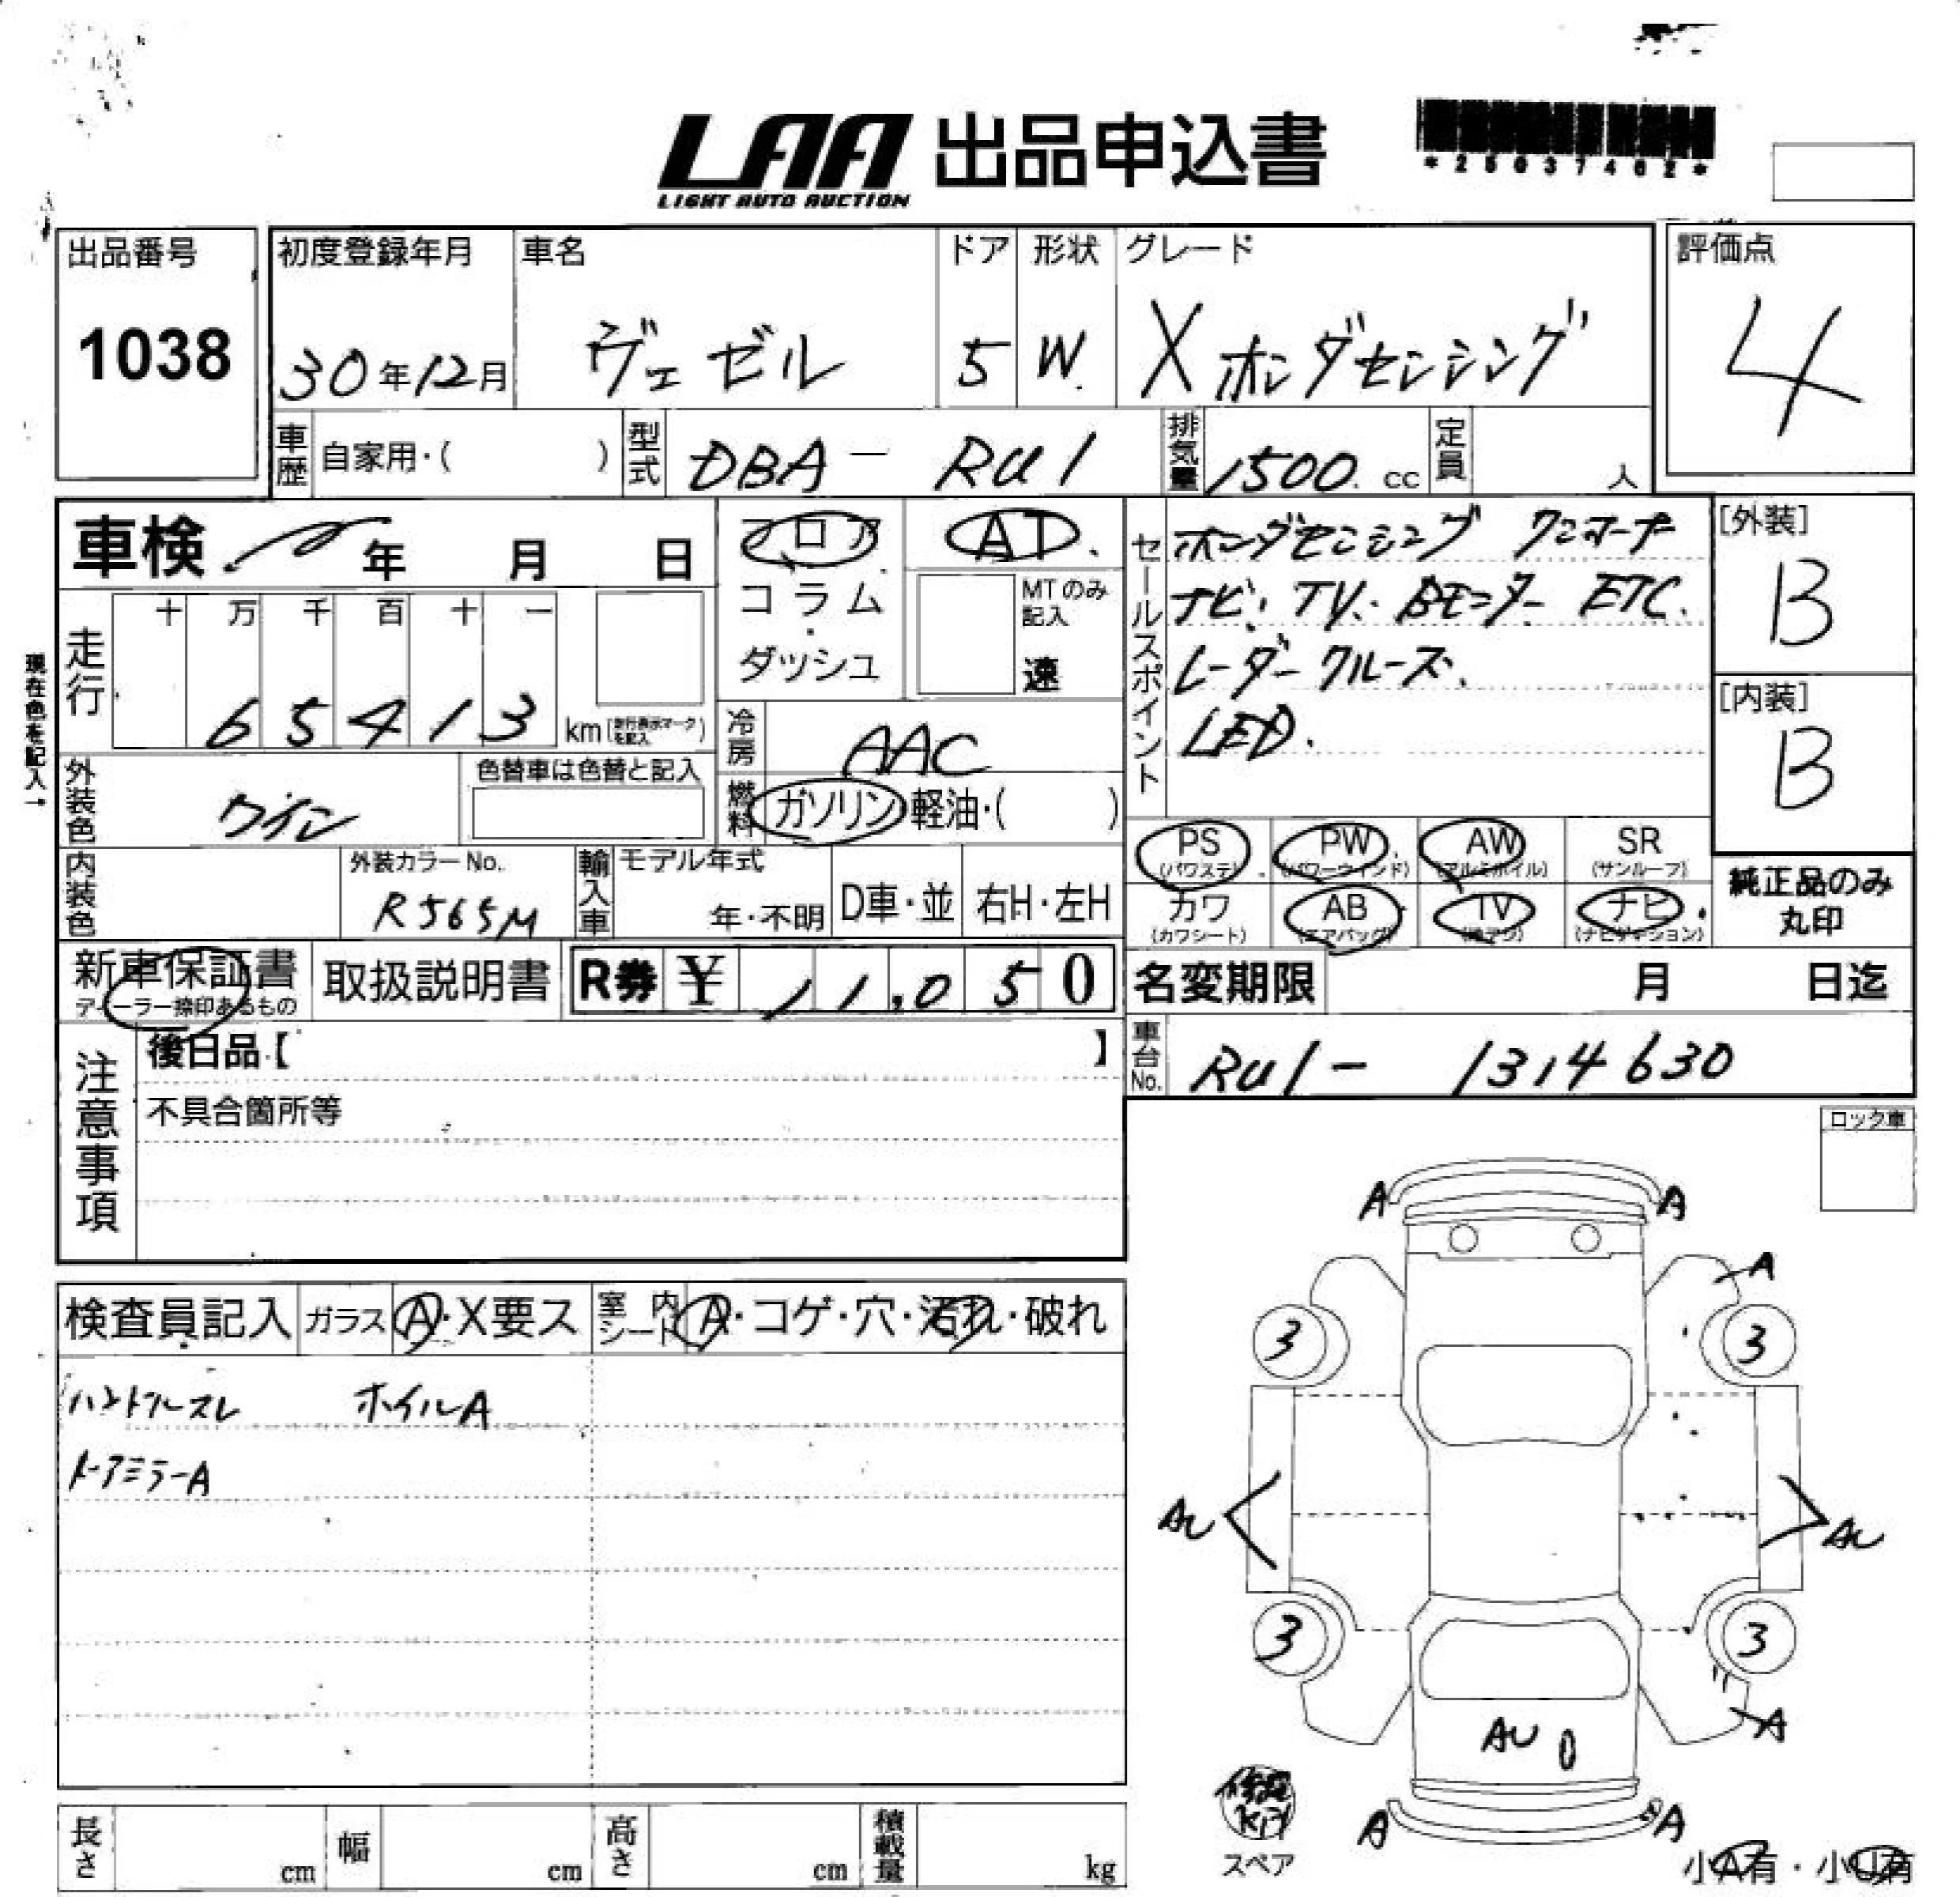 LAA 出品申込書
LIGHT AUTO AUCTION
*25037402*
出品番号
1038
初度登録年月
30年12月
車名
ヴェゼル
ドア
5
形状
W.
グレード
X ホンダセンシング
評価点
4
車歴 自家用・( )
型式 DBA - RU1
排気量 1500. cc
定員 人
車検 年 月 日
フロア
コラム
・
ダッシュ
AT.
MTのみ
記入
速
現在色を記入→
走行
十 万 千 百 十 一
6 5 4 1 3 km
冷房 AAC
燃料 ガソリン 軽油・( )
外装色 ワイン
色替車は色替と記入
内装色
外装カラーNo.
R565M
輸入車
モデル年式
年・不明
D車・並
右H・左H
セールスポイント
ホンダセンシング
ナビ. TV. Bモニター ETC.
レーダークルーズ.
LED.
[外装]
B
[内装]
B
PS
(パワステ)
PW
(パワーウィンド)
AW
(アルミホイル)
SR
(サンルーフ)
カワ
(カワシート)
AB
(エアバッグ)
TV
(地デジ)
ナビ
(ナビゲーション)
純正品のみ
丸印
新車保証書
ディーラー捺印あるもの
取扱説明書
R券 ¥ 11,050
名変期限 月 日迄
車台No. RU1- 1314630
注意事項
後日品【 】
不具合箇所等
ロック車
検査員記入
ガラス A・X要ス
室内シート A・コゲ・穴・汚れ・破れ
ハンドルスレ ホイルA
ドアミラーA
A A
A
3 3
AU AU
3 3
A
AU
A A
スペア
小A有・小U有
長さ cm
幅 cm
高さ cm
積載量 kg